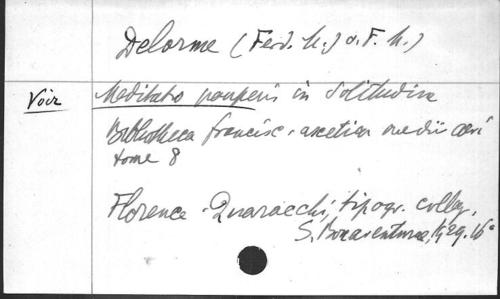 Delorme (Ferd. M.) O.F.M.)
Voir Meditatio pauperis in Solitudine
Bibliotheca francisc. ascetica medii aevi
tome 8
Florence - Quaracchi, tipogr. colleg.
S. Bonaventurae, 1929. 16°